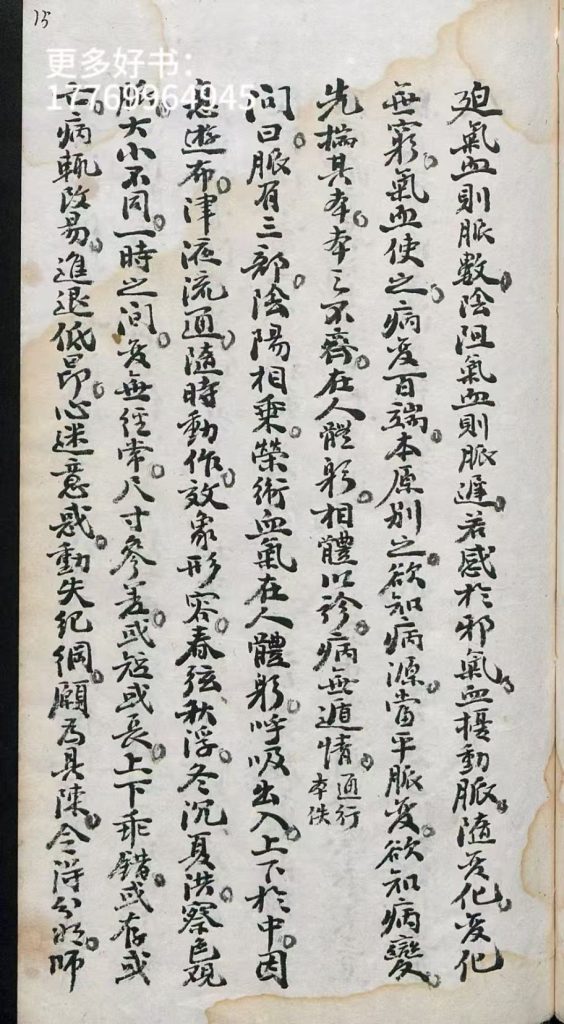 15
更多好书：
17769964945
迫氣血則脈數。陰阻氣血則脈遲。若感於邪。氣血擾動。脈隨変化。変化
無窮。氣血使之。病変百端。本原別之。欲知病源。當平脈変。欲知病變。
先揣其本。本之不齊。在人體躬。相體以診。病無遁情。通行
本佚
問曰。脈有三部。陰陽相乘。榮衛血氣。在人體躬。呼吸出入。上下於中。因
息遊布。津液流通。隨時動作。效象形容。春弦秋浮。冬沉夏洪。察色觀
脈。大小不同。一時之间。変無經常。尺寸參差。或短或長。上下乖錯。或存或
亡。病輒改易。進退低昂。心迷意惑。動失紀綱。願為具陳。令得分明。師